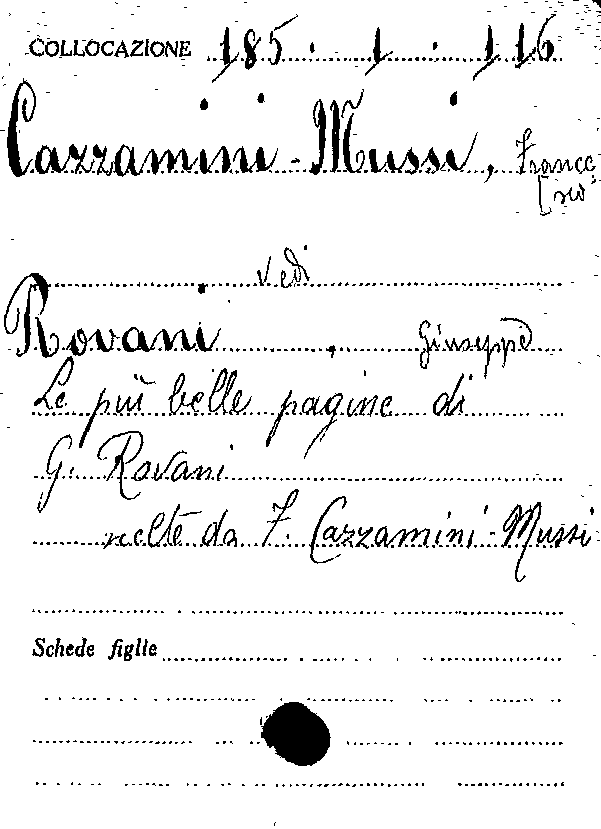 COLLOCAZIONE 185 . 1 . 116
Cazzamini-Mussi, France
[sco
vedi
Rovani, Giuseppe
Le più belle pagine di
G. Rovani
scelte da F. Cazzamini-Mussi
Schede figlie